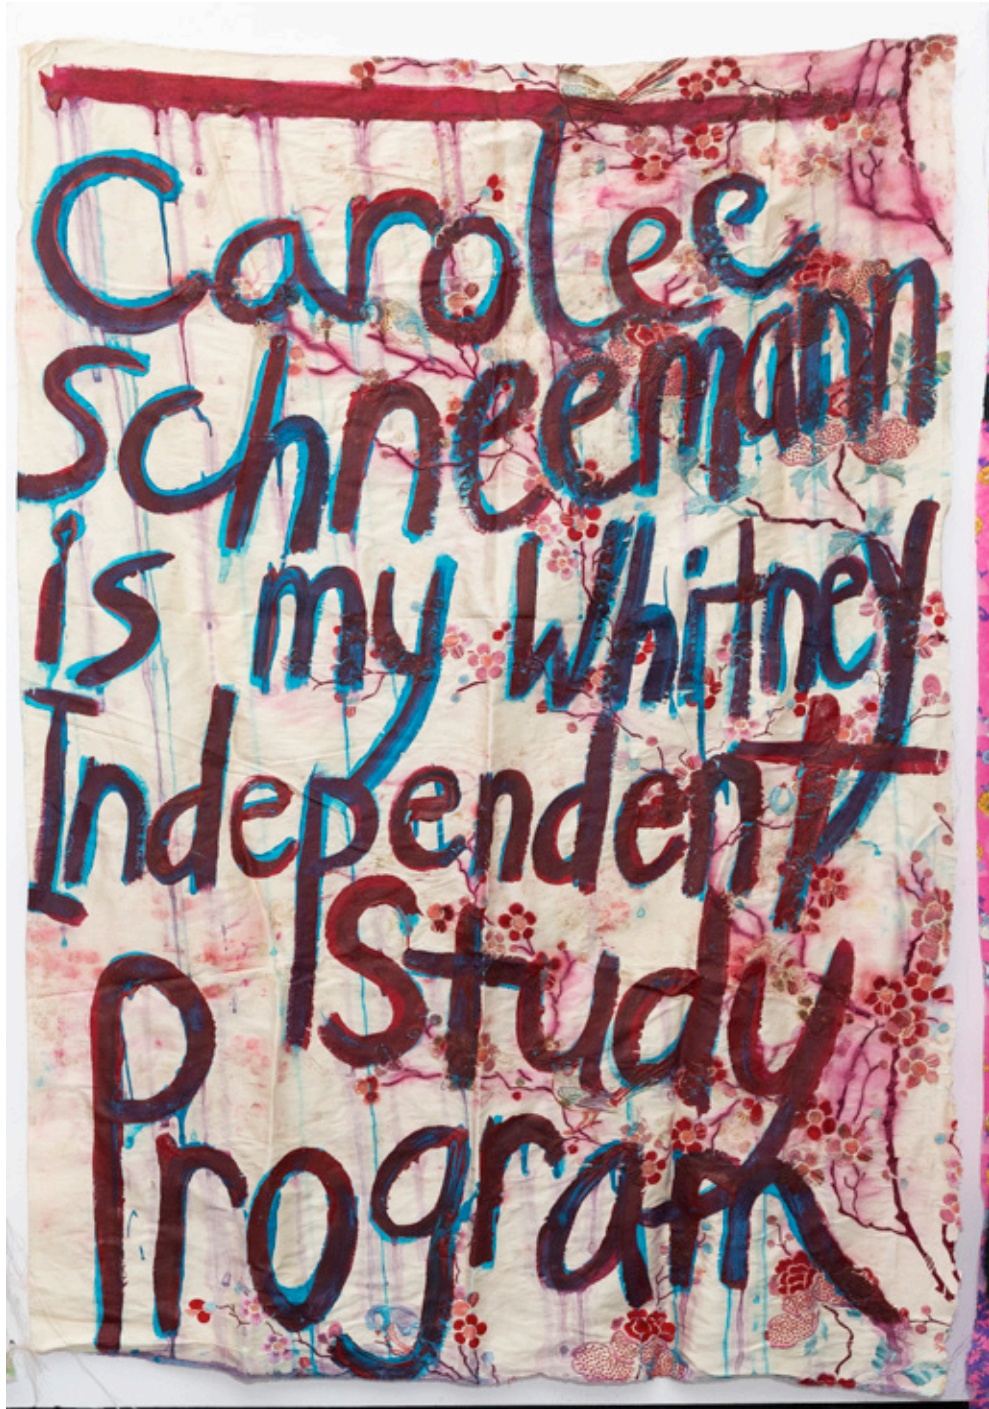 Carolee
Schneemann
is my Whitney
Independent
Study
Program